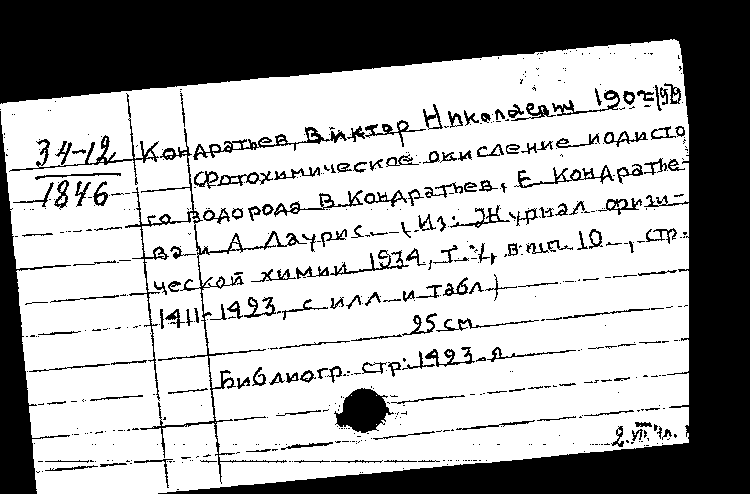 34-12
1846
Кондратьев, Виктор Николаевич 1902-1979
Фотохимическое окисление иодисто
го водорода В. Кондратьев, Е Кондратье-
ва и А Лаурис. (Из: Журнал физи-
ческой химии 1934, т. V, вып 10 , стр.
1411-1423, с илл и табл.)
25 см
Библиогр. стр: 1423-я.